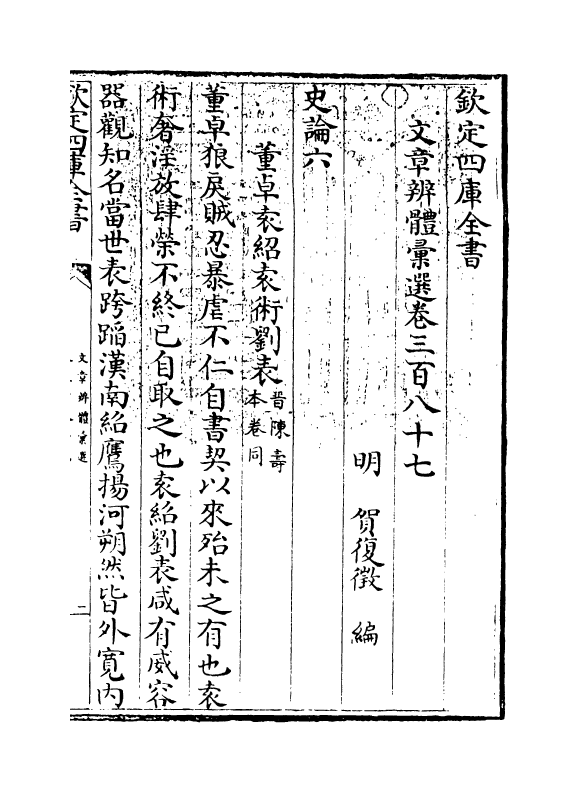 欽定四庫全書
文章辨體彙選卷三百八十七
明 賀復徵 編
史論六
董卓袁紹袁術劉表晉陳壽本卷同
董卓狼戾賊忍暴虐不仁自書契以來殆未之有也袁
術奢淫放肆榮不終已自取之也袁紹劉表咸有威容
器觀知名當世表跨蹈漢南紹鷹揚河朔然皆外寛内
欽定四庫全書
文章辨體彙選